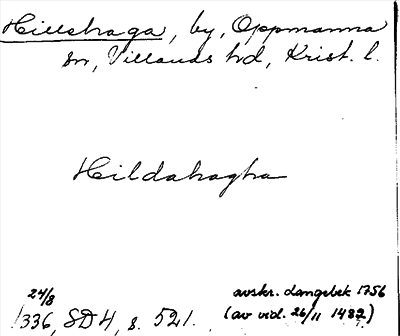 Hillshaga, by, Oppmanna
sn, Villands hd, Krist. l.
Hildahagha
24/8
1336, SD 4, s. 521.
avskr. Langebek 1756
(av vid. 26/11 1482)